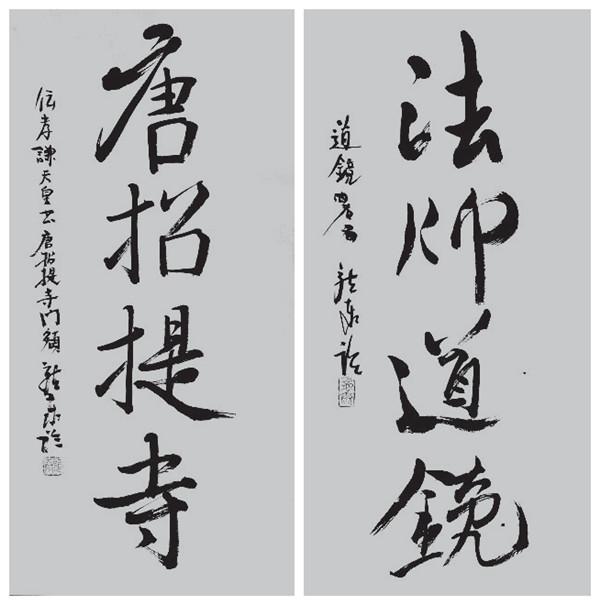 法師道鏡
道鏡署名 臨
唐招提寺
伝孝謙天皇書唐招提寺門額 臨